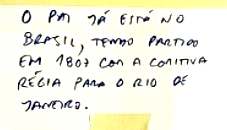 O PAI JÁ ESTÁ NO
BRASIL, TENDO PARTIDO
EM 1807 COM A COMITIVA
RÉGIA PARA O RIO DE
JANEIRO.